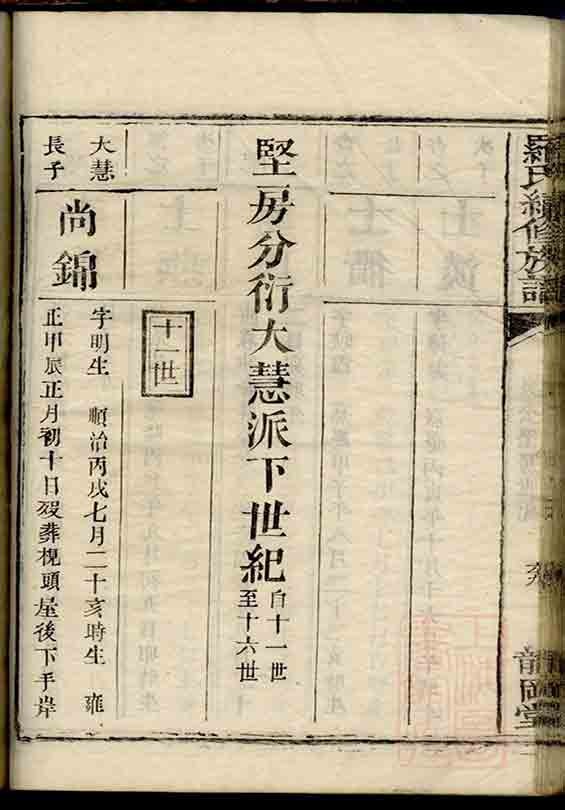 羅氏續修族譜
龍岡堂
堅房分衍大慧派下世紀
自十一世
至十六世
十一世
大慧
長子
尚錦
字明生 順治丙戌七月二十亥時生 雍
正甲辰正月初十日歿葬枧頭屋後下手岸